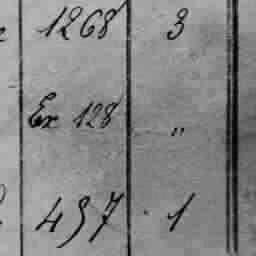 1268 3
Ex 128 "
497 1